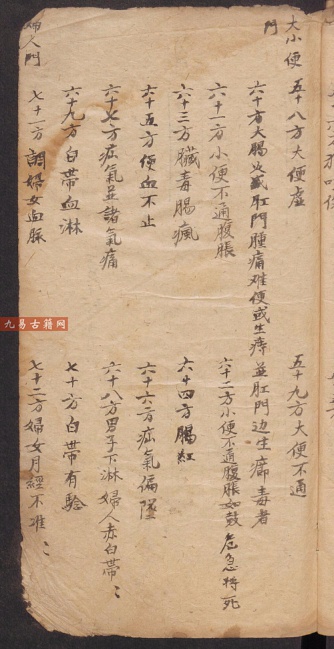 大小便門
五十八方大便虛
五十九方大便不通
六十方大腸火盛肛門腫痛难便或生痔並肛門边生癤毒者
六十一方小便不通腹脹
六十二方小便不通腹脹如鼓危急將死
六十三方臟毒腸瘋
六十四方腸紅
六十五方便血不止
六十六方疝氣偏墜
六十七方疝氣並諸氣痛
六十八方男子下淋婦人赤白帶
六十九方白帶血淋
七十方白帶有騐
婦人門
七十一方調婦女血脉
七十二方婦女月經不准
九易古籍网